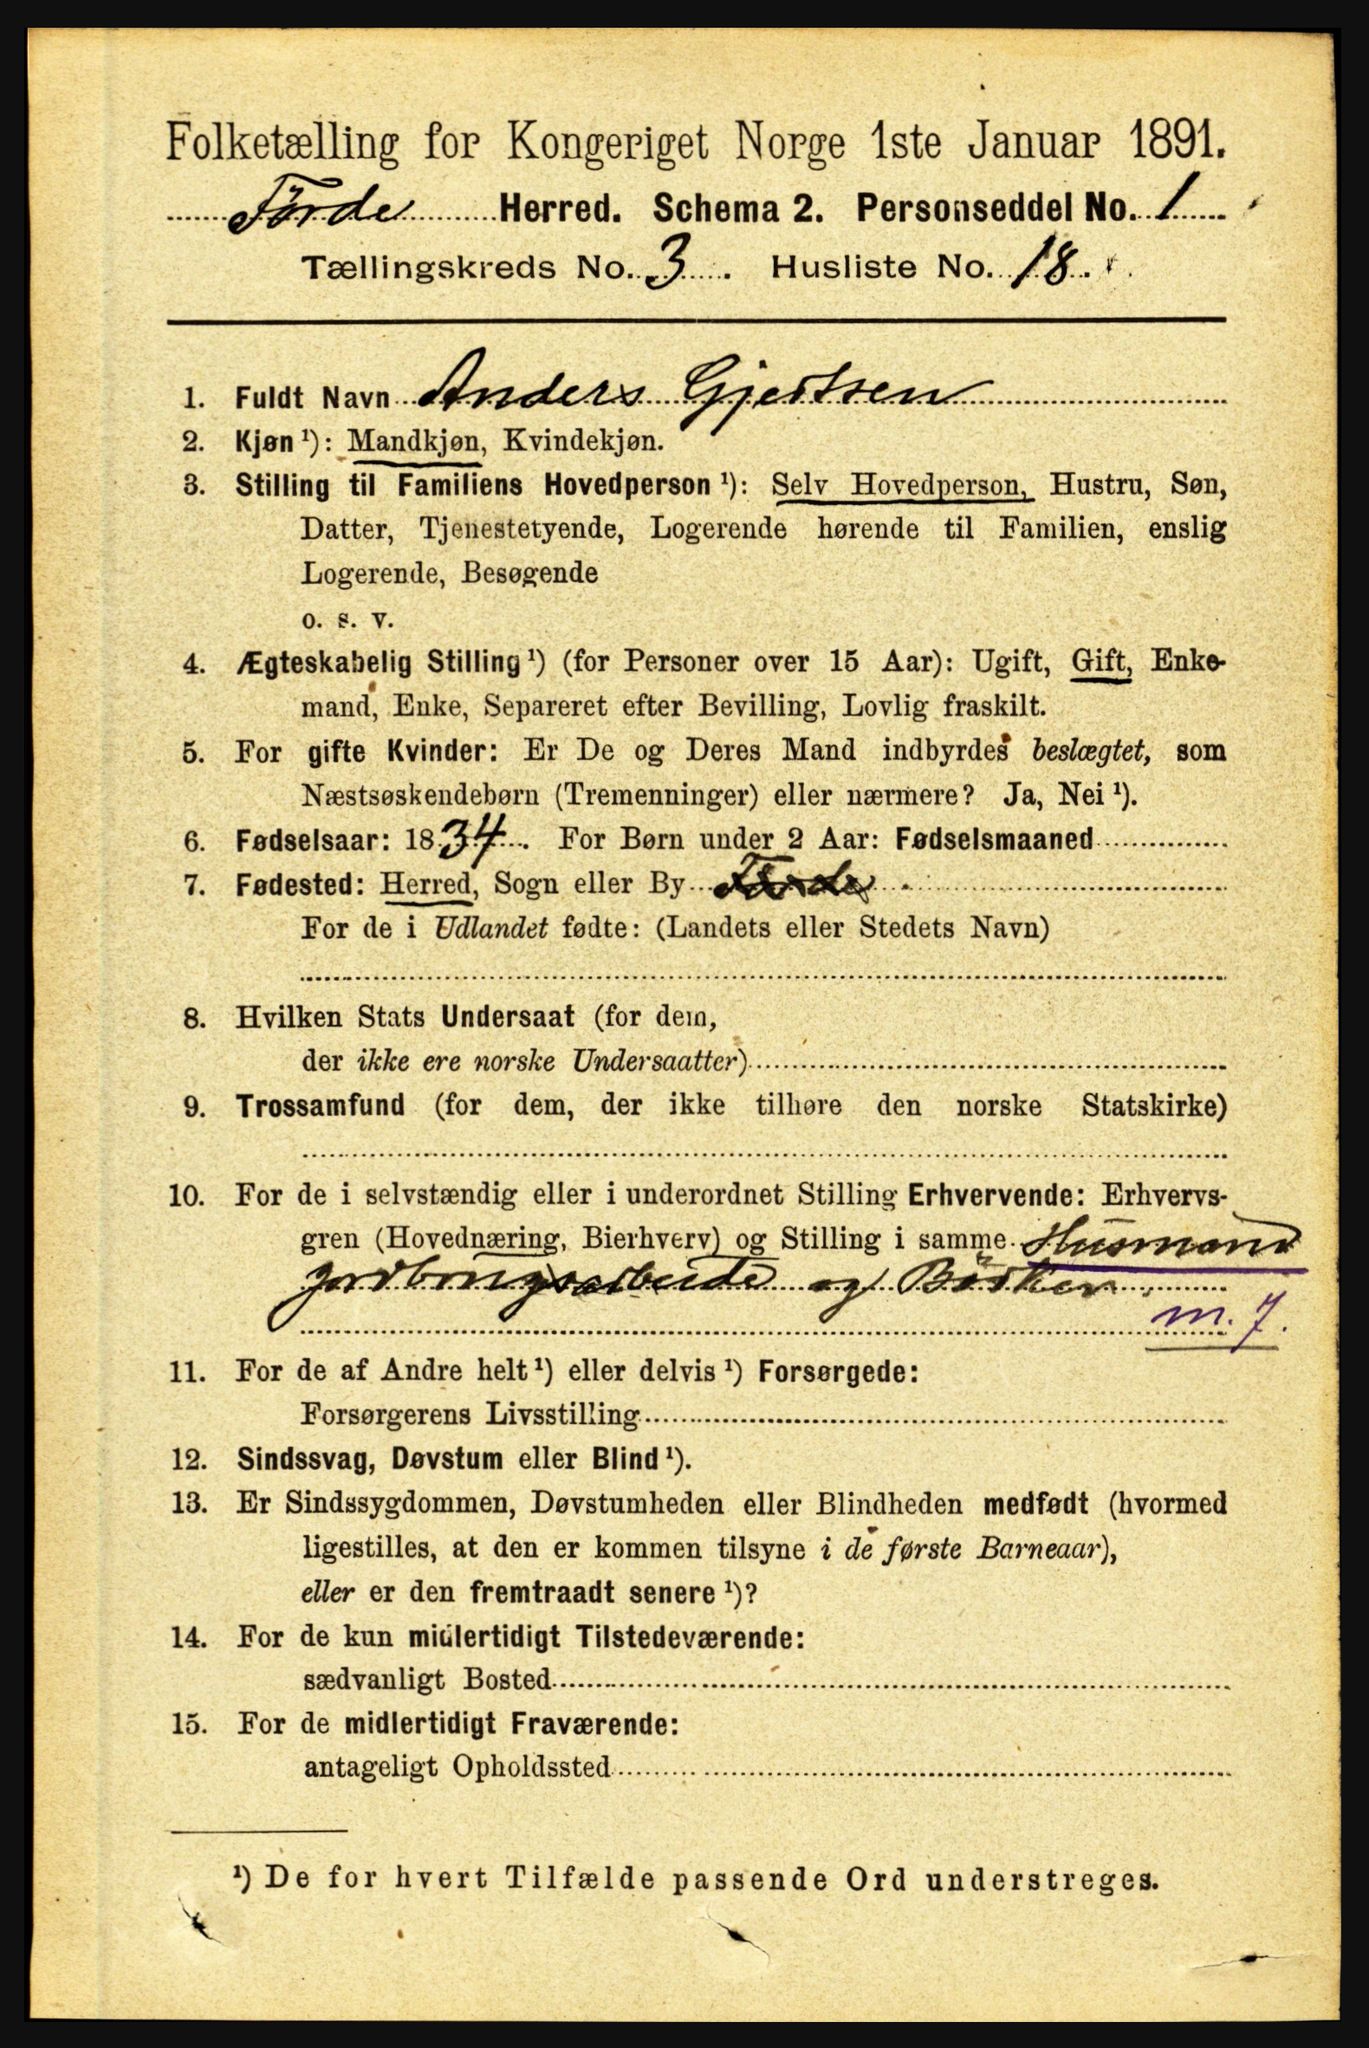 Folketælling for Kongeriget Norge 1ste Januar 1891.
Förde Herred. Schema 2. Personseddel No. 1
Tællingskreds No. 3. Husliste No. 18.
1. Fuldt Navn Anders Gjertsen
2. Kjøn ¹): Mandkjøn, Kvindekjøn.
3. Stilling til Familiens Hovedperson ¹): Selv Hovedperson, Hustru, Søn,
Datter, Tjenestetyende, Logerende hørende til Familien, enslig
Logerende, Besøgende
o. s. v.
4. Ægteskabelig Stilling ¹) (for Personer over 15 Aar): Ugift, Gift, Enke-
mand, Enke, Separeret efter Bevilling, Lovlig fraskilt.
5. For gifte Kvinder: Er De og Deres Mand indbyrdes beslægtet, som
Næstsøskendebørn (Tremenninger) eller nærmere? Ja, Nei ¹).
6. Fødselsaar: 1834. For Børn under 2 Aar: Fødselsmaaned
7. Fødested: Herred, Sogn eller By Förde
For de i Udlandet fødte: (Landets eller Stedets Navn)
8. Hvilken Stats Undersaat (for dem,
der ikke ere norske Undersaatter)
9. Trossamfund (for dem, der ikke tilhøre den norske Statskirke)
10. For de i selvstændig eller i underordnet Stilling Erhvervende: Erhvervs-
gren (Hovednæring, Bierhverv) og Stilling i samme Husmand
jordbrugsarbeide og Bödker
m. 7.
11. For de af Andre helt ¹) eller delvis ¹) Forsørgede:
Forsørgerens Livsstilling
12. Sindssvag, Døvstum eller Blind ¹).
13. Er Sindssygdommen, Døvstumheden eller Blindheden medfødt (hvormed
ligestilles, at den er kommen tilsyne i de første Barneaar),
eller er den fremtraadt senere ¹)?
14. For de kun midlertidigt Tilstedeværende:
sædvanligt Bosted
15. For de midlertidigt Fraværende:
antageligt Opholdssted
¹) De for hvert Tilfælde passende Ord understreges.